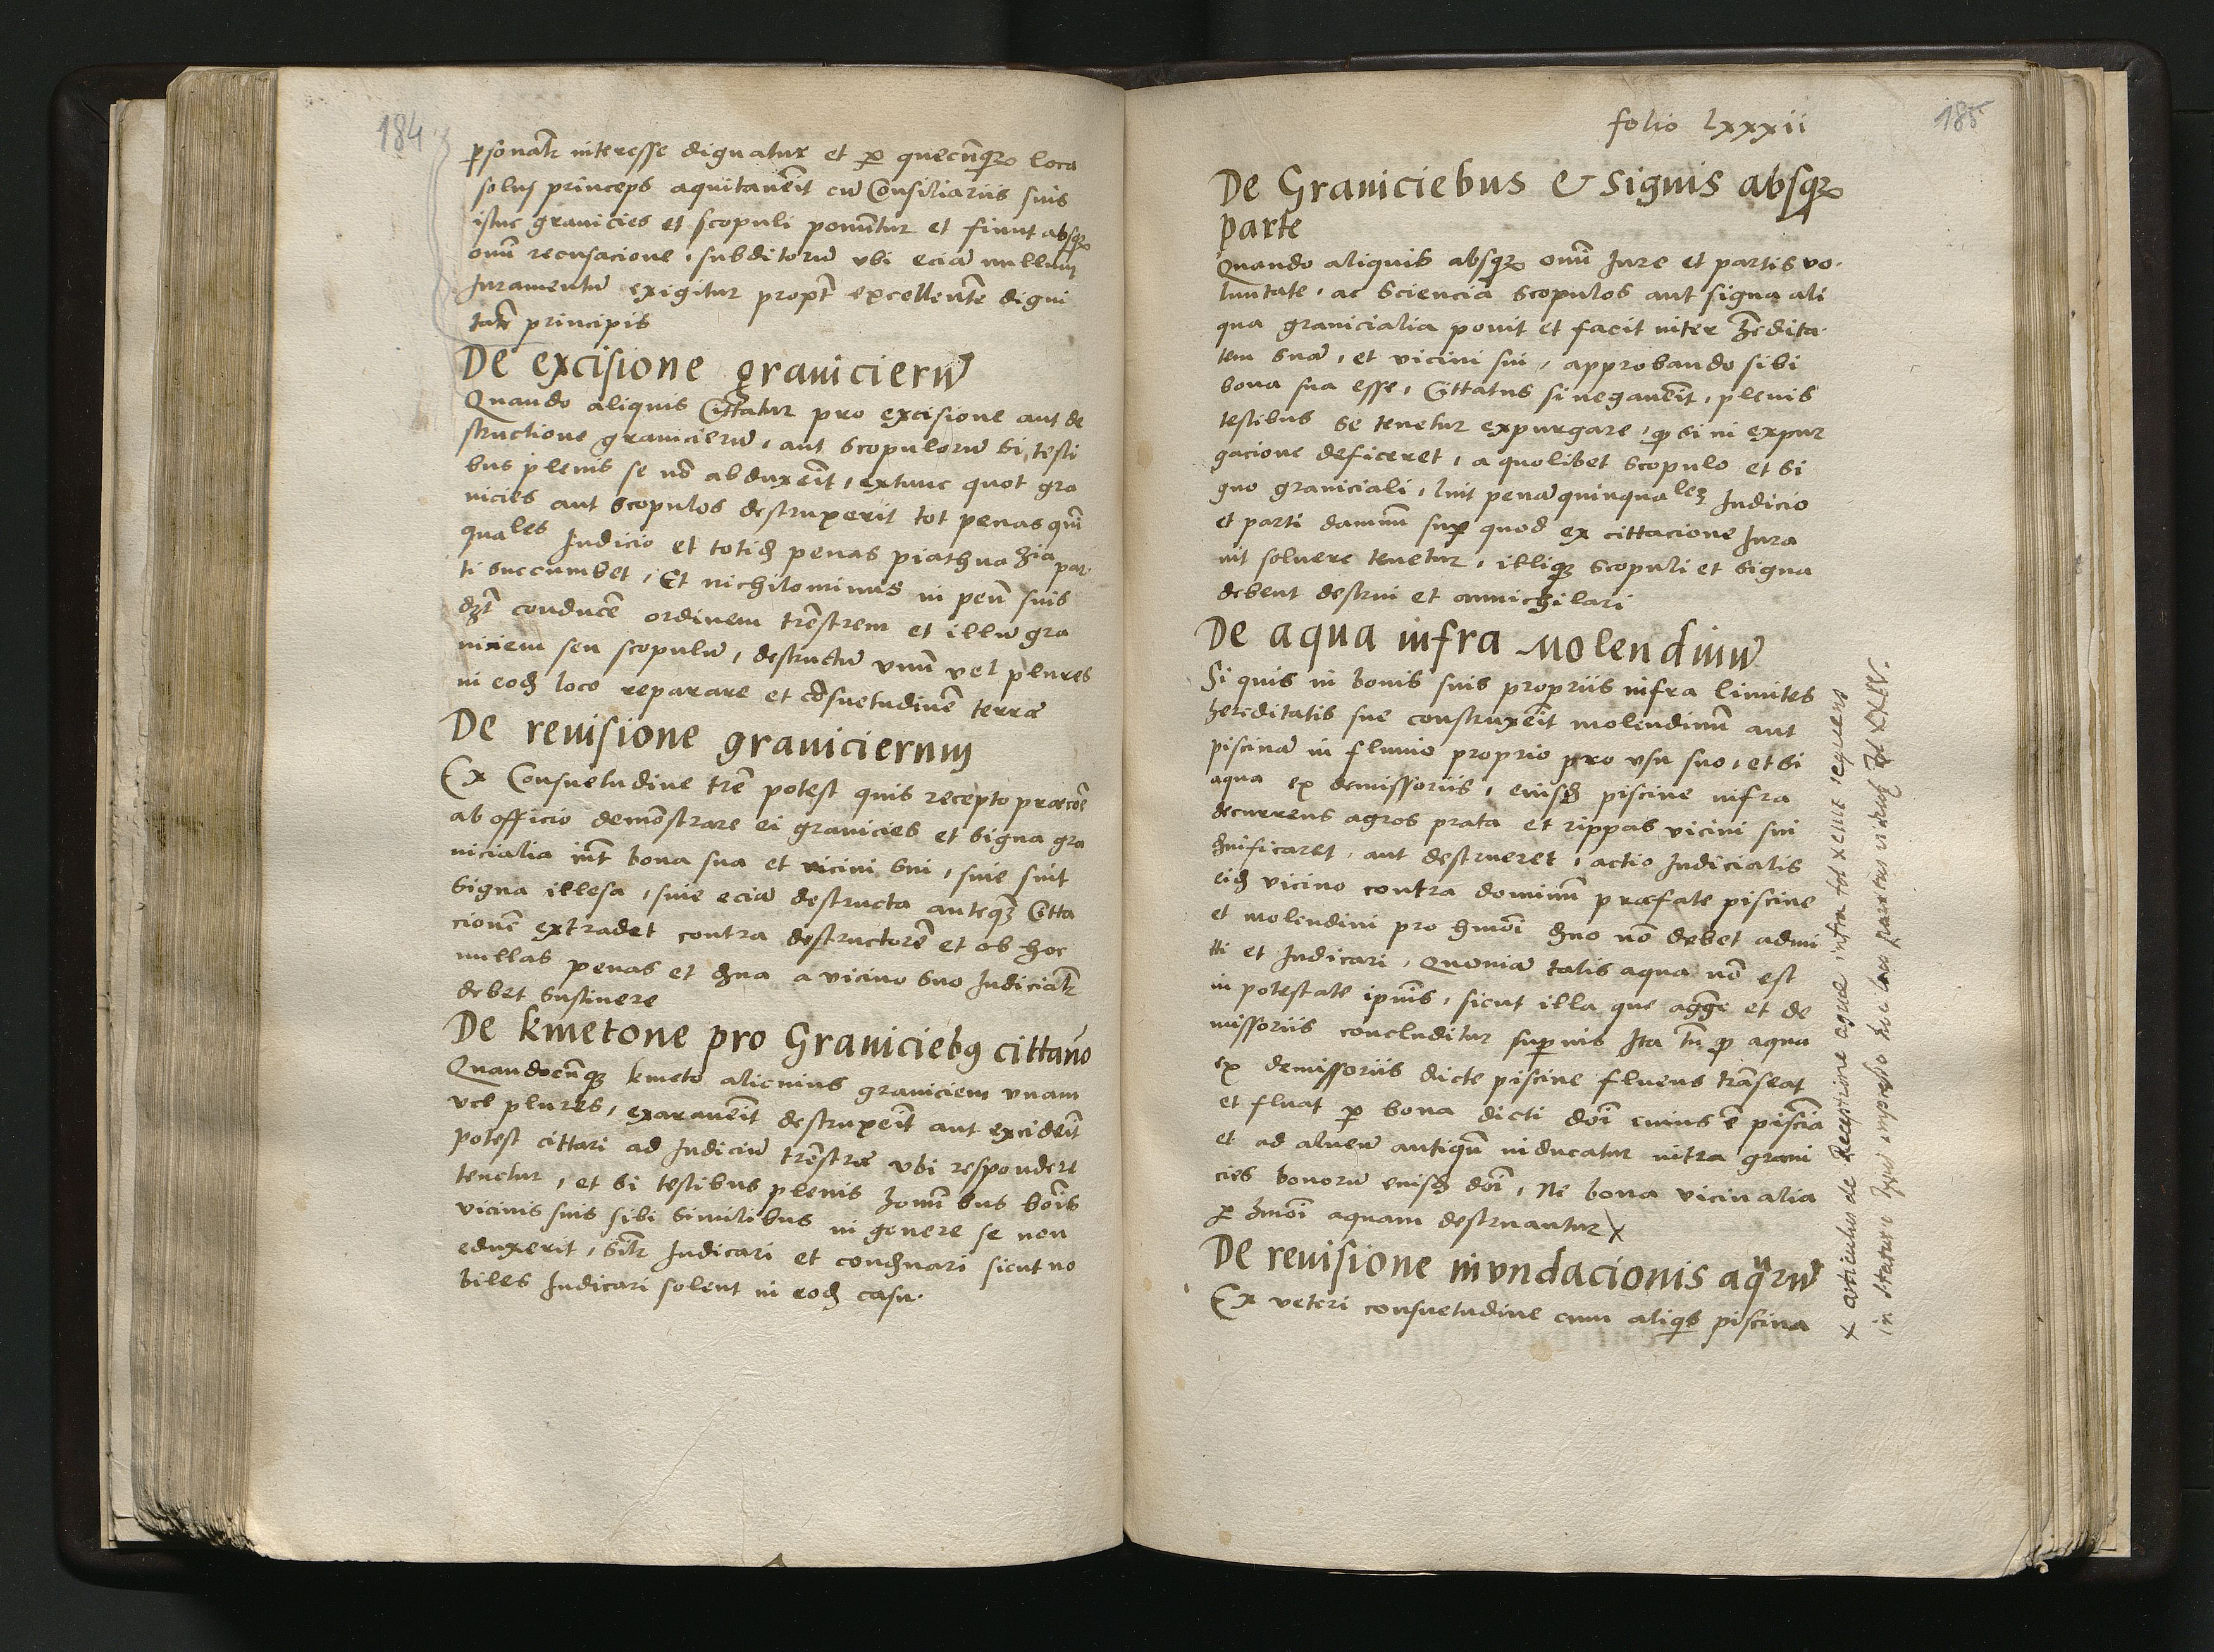 184
personalr interesse dignatur et p quecunqz loca
solus princeps aquitauerit cu Consiliariis suis
istuc granicies et scopuli ponuntur et fiunt absqz
omi recusacione, subditoru vbi ecia nullum
Iuramentu exigitur propt excellente digni
tate principis
De excisione granicieru
Quando aliquis Cittatur pro excisione aut de
structione granicieru, aut scopuloru si, testi
bus plenis se no abduxerit, extunc quot gra
nicies aut scopulos destruxerit tot penas quin
quales Iudicio et totide penas piathnadzia par
ti succumbet, Et nichilominus in penis suis
dzt conduce ordinem trestrem et illu gra
niciem seu scopulu, destructu vnu vel plures
in eodz loco reparare et cosuetudine terrae
De reuisione granicierum
Ex Consuetudine tre potest quis recepto praecoe
ab officio demostrare ei granicies et signa gra
nicialia int bona sua et vicini sui, siue sint
signa illesa, siue ecia destructa anteqz Citta
cione extradet contra destructore et ob hoc
nullas penas et dzna a vicino suo Iudicialr
debet sustinere
De kmetone pro Graniciebus cittando
Quandocunqz kmeto alicuius graniciem vnam
vel plures, exarauerit destruxerit aut exciderit
potest cittari ad Iudiciu trestrae vbi respondere
tenetur, et si testibus plenis homi bus bois
vicinis suis sibi similibus in genere se non
eduxerit, silr Iudicari et condznari sicut no
biles Iudicari solent in eodz casu.
folio lxxxii
185
De Graniciebus & signis absqz
parte
Quando aliquis absqz omi Iure et partis vo.
luntate, ac sciencia scopulos aut signa ali
qua granicialia ponit et facit inter Heredita.
tem sua, et vicini sui, approbando sibi
bona sua esse, Cittatus si negauerit, plenis
testibus se tenetur expurgare, q si in expur
gacione deficeret, a quolibet scopulo et si
gno graniciali, luit pena quinqualez Iudicio
et parti damnu sup quod ex cittacione Iura
uit soluere tenetur, illiqz scopuli et signa
debent destrui et annichilari
De aqua infra Molendinu
Si quis in bonis suis propriis infra limites
hereditatis sue construxerit molendinu aut
piscina in fluuio proprio pro vsu suo, et si
aqua ex demissoriis, eiusdz piscine infra
decurrens agros prata et rippas vicini sui
dznificaret, aut destrueret, actio Iudicialis
eidz vicino contra dominu praefate piscine
et molendini pro hmoi dzno no debet admi
tti et Iudicari, Quonia talis aqua no est
in potestate ipius, sicut illa que aggere et de
missoriis concluditur superius Ita tn q aqua
ex demissoriis dicte piscine fluens transeat
et fluat p bona dicti doi cuius e piscia
et ad alueu antiqu inducatur intra grani
cies bonoru eiusdz doi, Ne bona vicin alia
p hmoi aquam destruantur x
De reuisione invndacionis aquaru
Ex veteri consuetudine cum aliqis piscina
x articulus de Receptione aque infra fol xcuit sequens
in Statuto impresso hoc loco